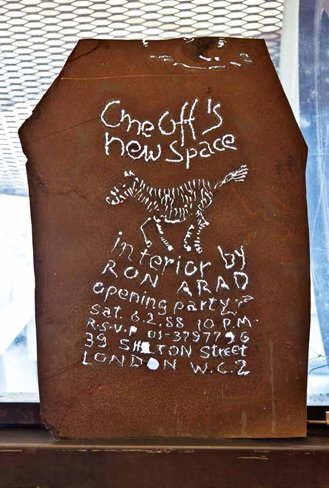 One Off's
new space
interior by
RON ARAD
opening party
Sat. 6.2.88 10 P.M.
R.S.V.P 01-3797796
39 SHELTON Street
LONDON W.C.2